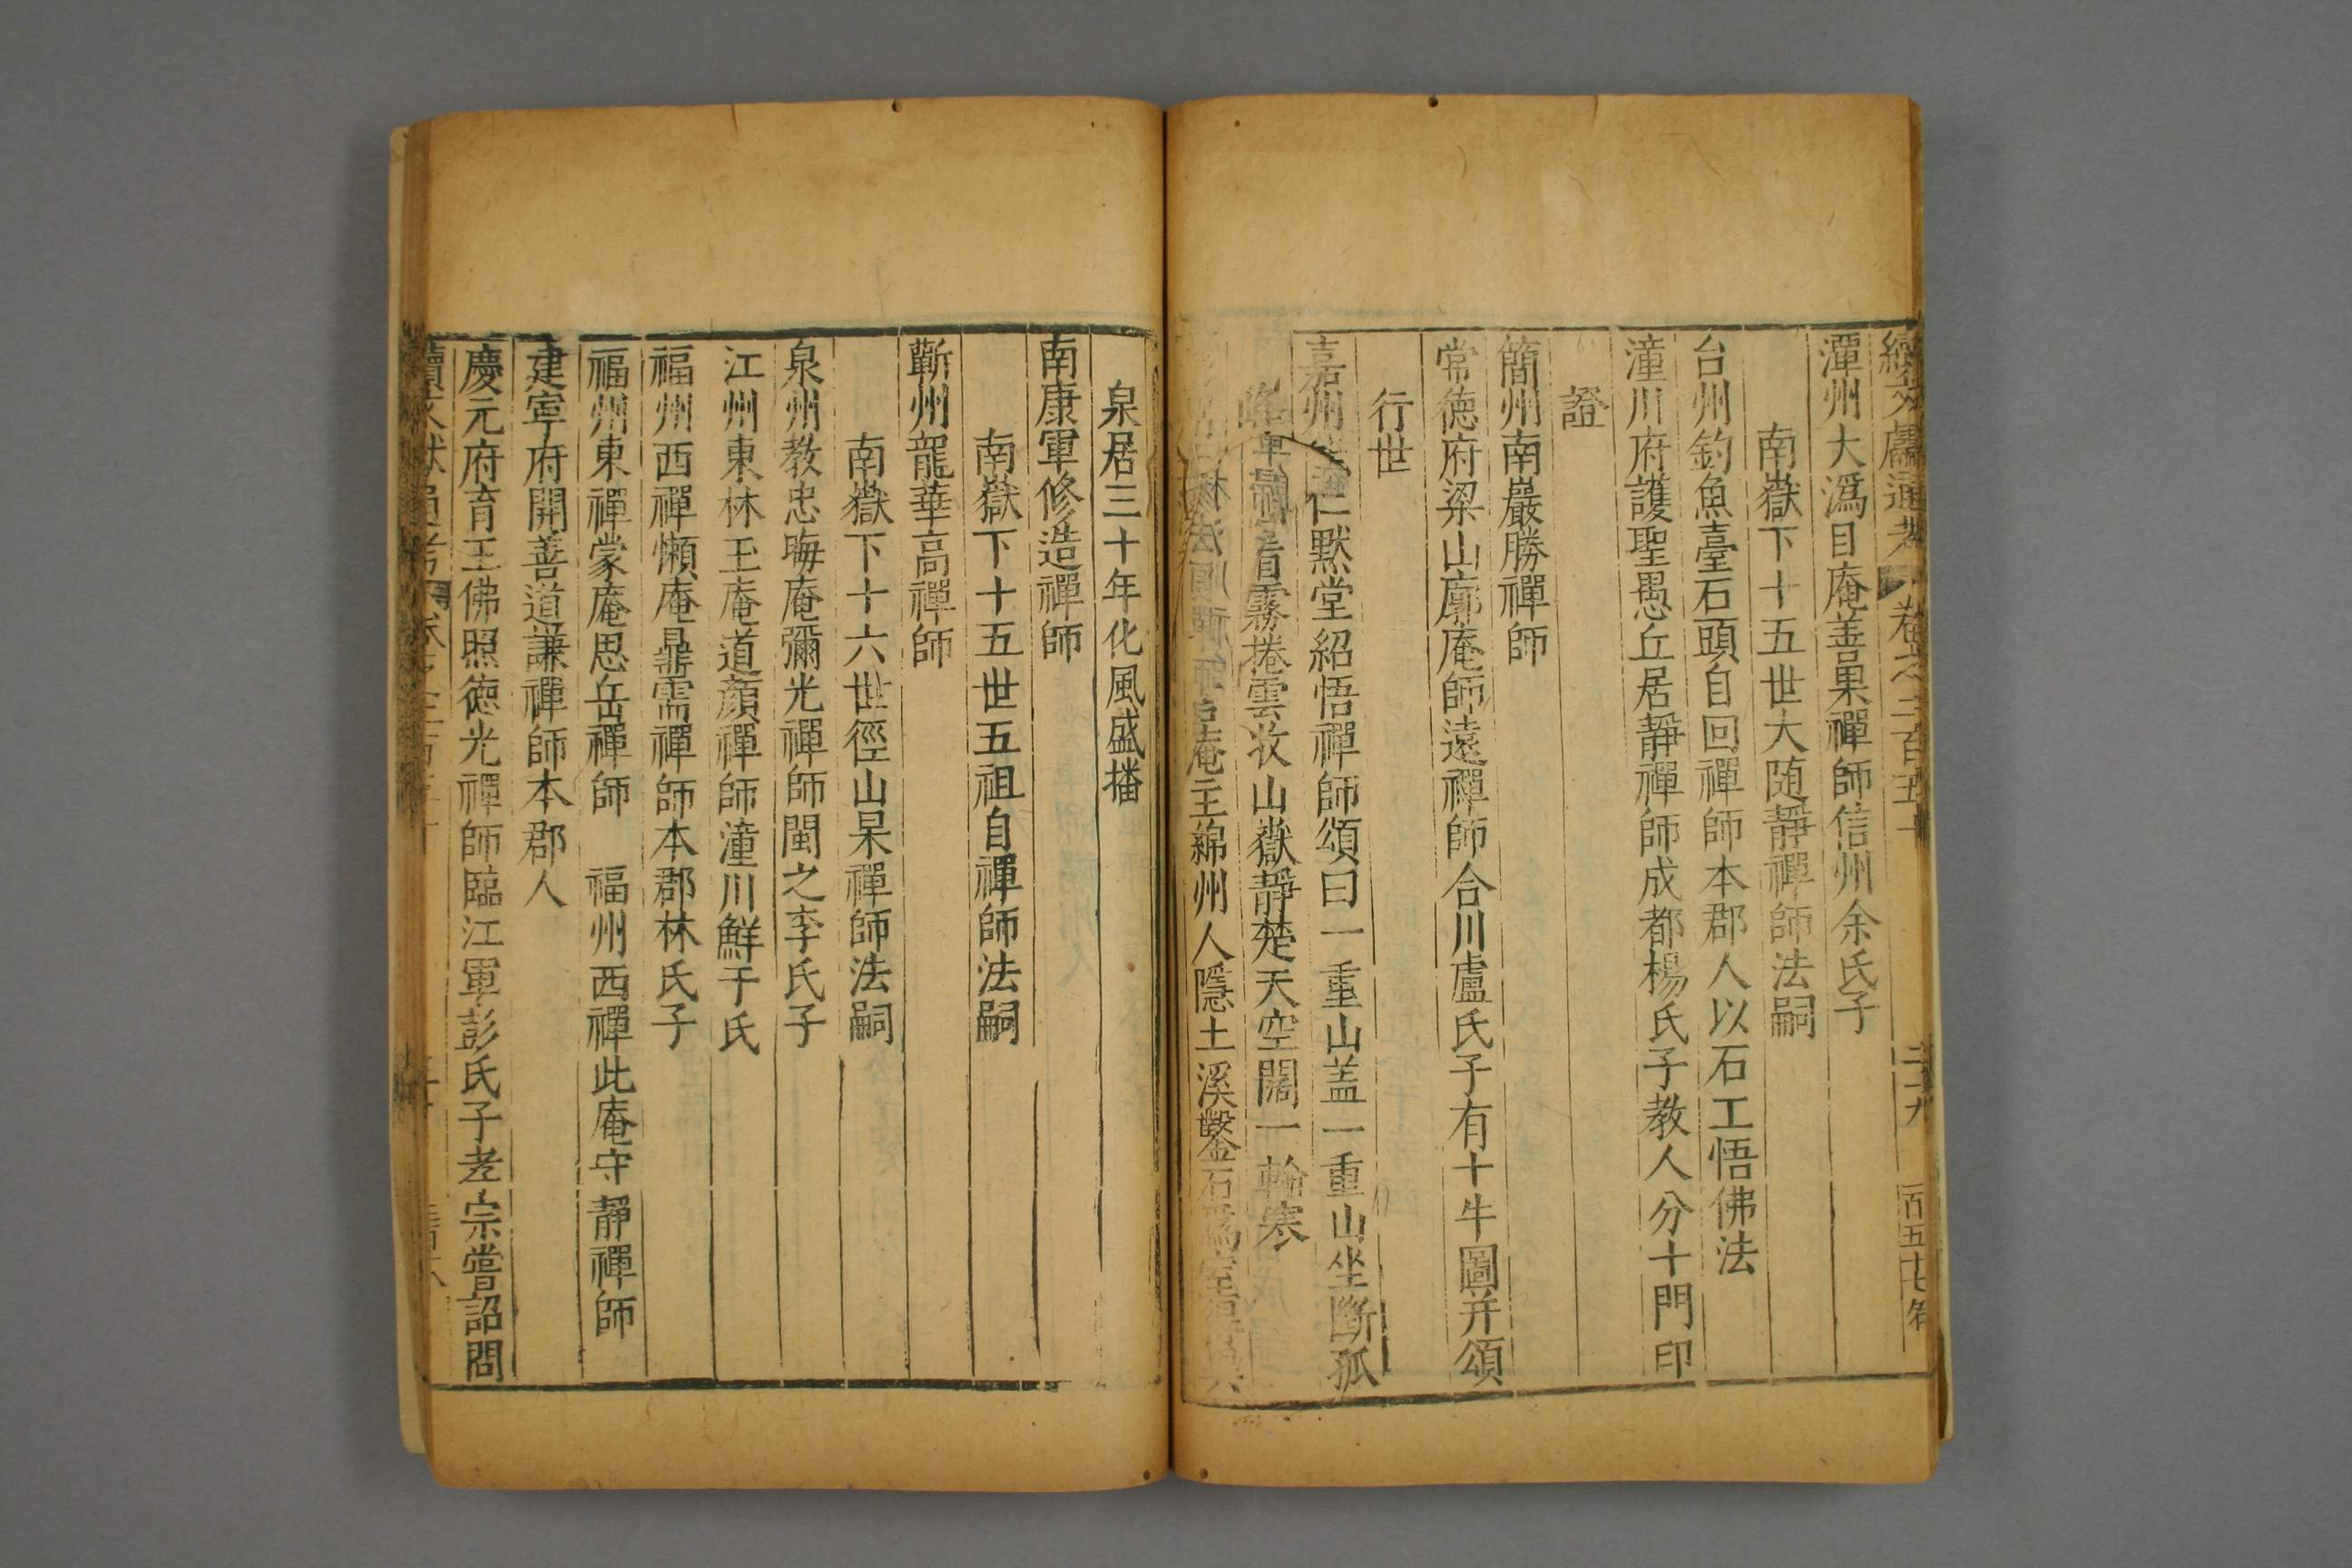 續文獻通考 卷之二百五十 二十九 一百五十七
潭州大溈目庵善果禪師信州余氏子
南嶽下十五世大随靜禪師法嗣
台州釣魚臺石頭自回禪師本郡人以石工悟佛法
潼川府護聖愚丘居靜禪師成都楊氏子教人分十門印
證
簡州南巖勝禪師
常德府梁山廓庵師遠禪師合川盧氏子有十牛圖并頌
行世
嘉州仁默堂紹悟禪師頌曰一重山盖一重山坐斷孤
峰霧捲雲妝山嶽靜楚天空闊一輪寒
庵主綿州人隱土溪鑿石爲室
泉居三十年化風盛播
南康軍修造禪師
南嶽下十五世五祖自禪師法嗣
蘄州龍華高禪師
南嶽下十六世徑山杲禪師法嗣
泉州教忠晦庵彌光禪師閩之李氏子
江州東林王庵道顏禪師潼川鮮于氏
福州西禪懶庵鼎需禪師本郡林氏子
福州東禪蒙庵思岳禪師 福州西禪此庵守靜禪師
建寧府開善道謙禪師本郡人
慶元府育王佛照德光禪師臨江軍彭氏子孝宗嘗詔問
續文獻通考 卷之二百五十